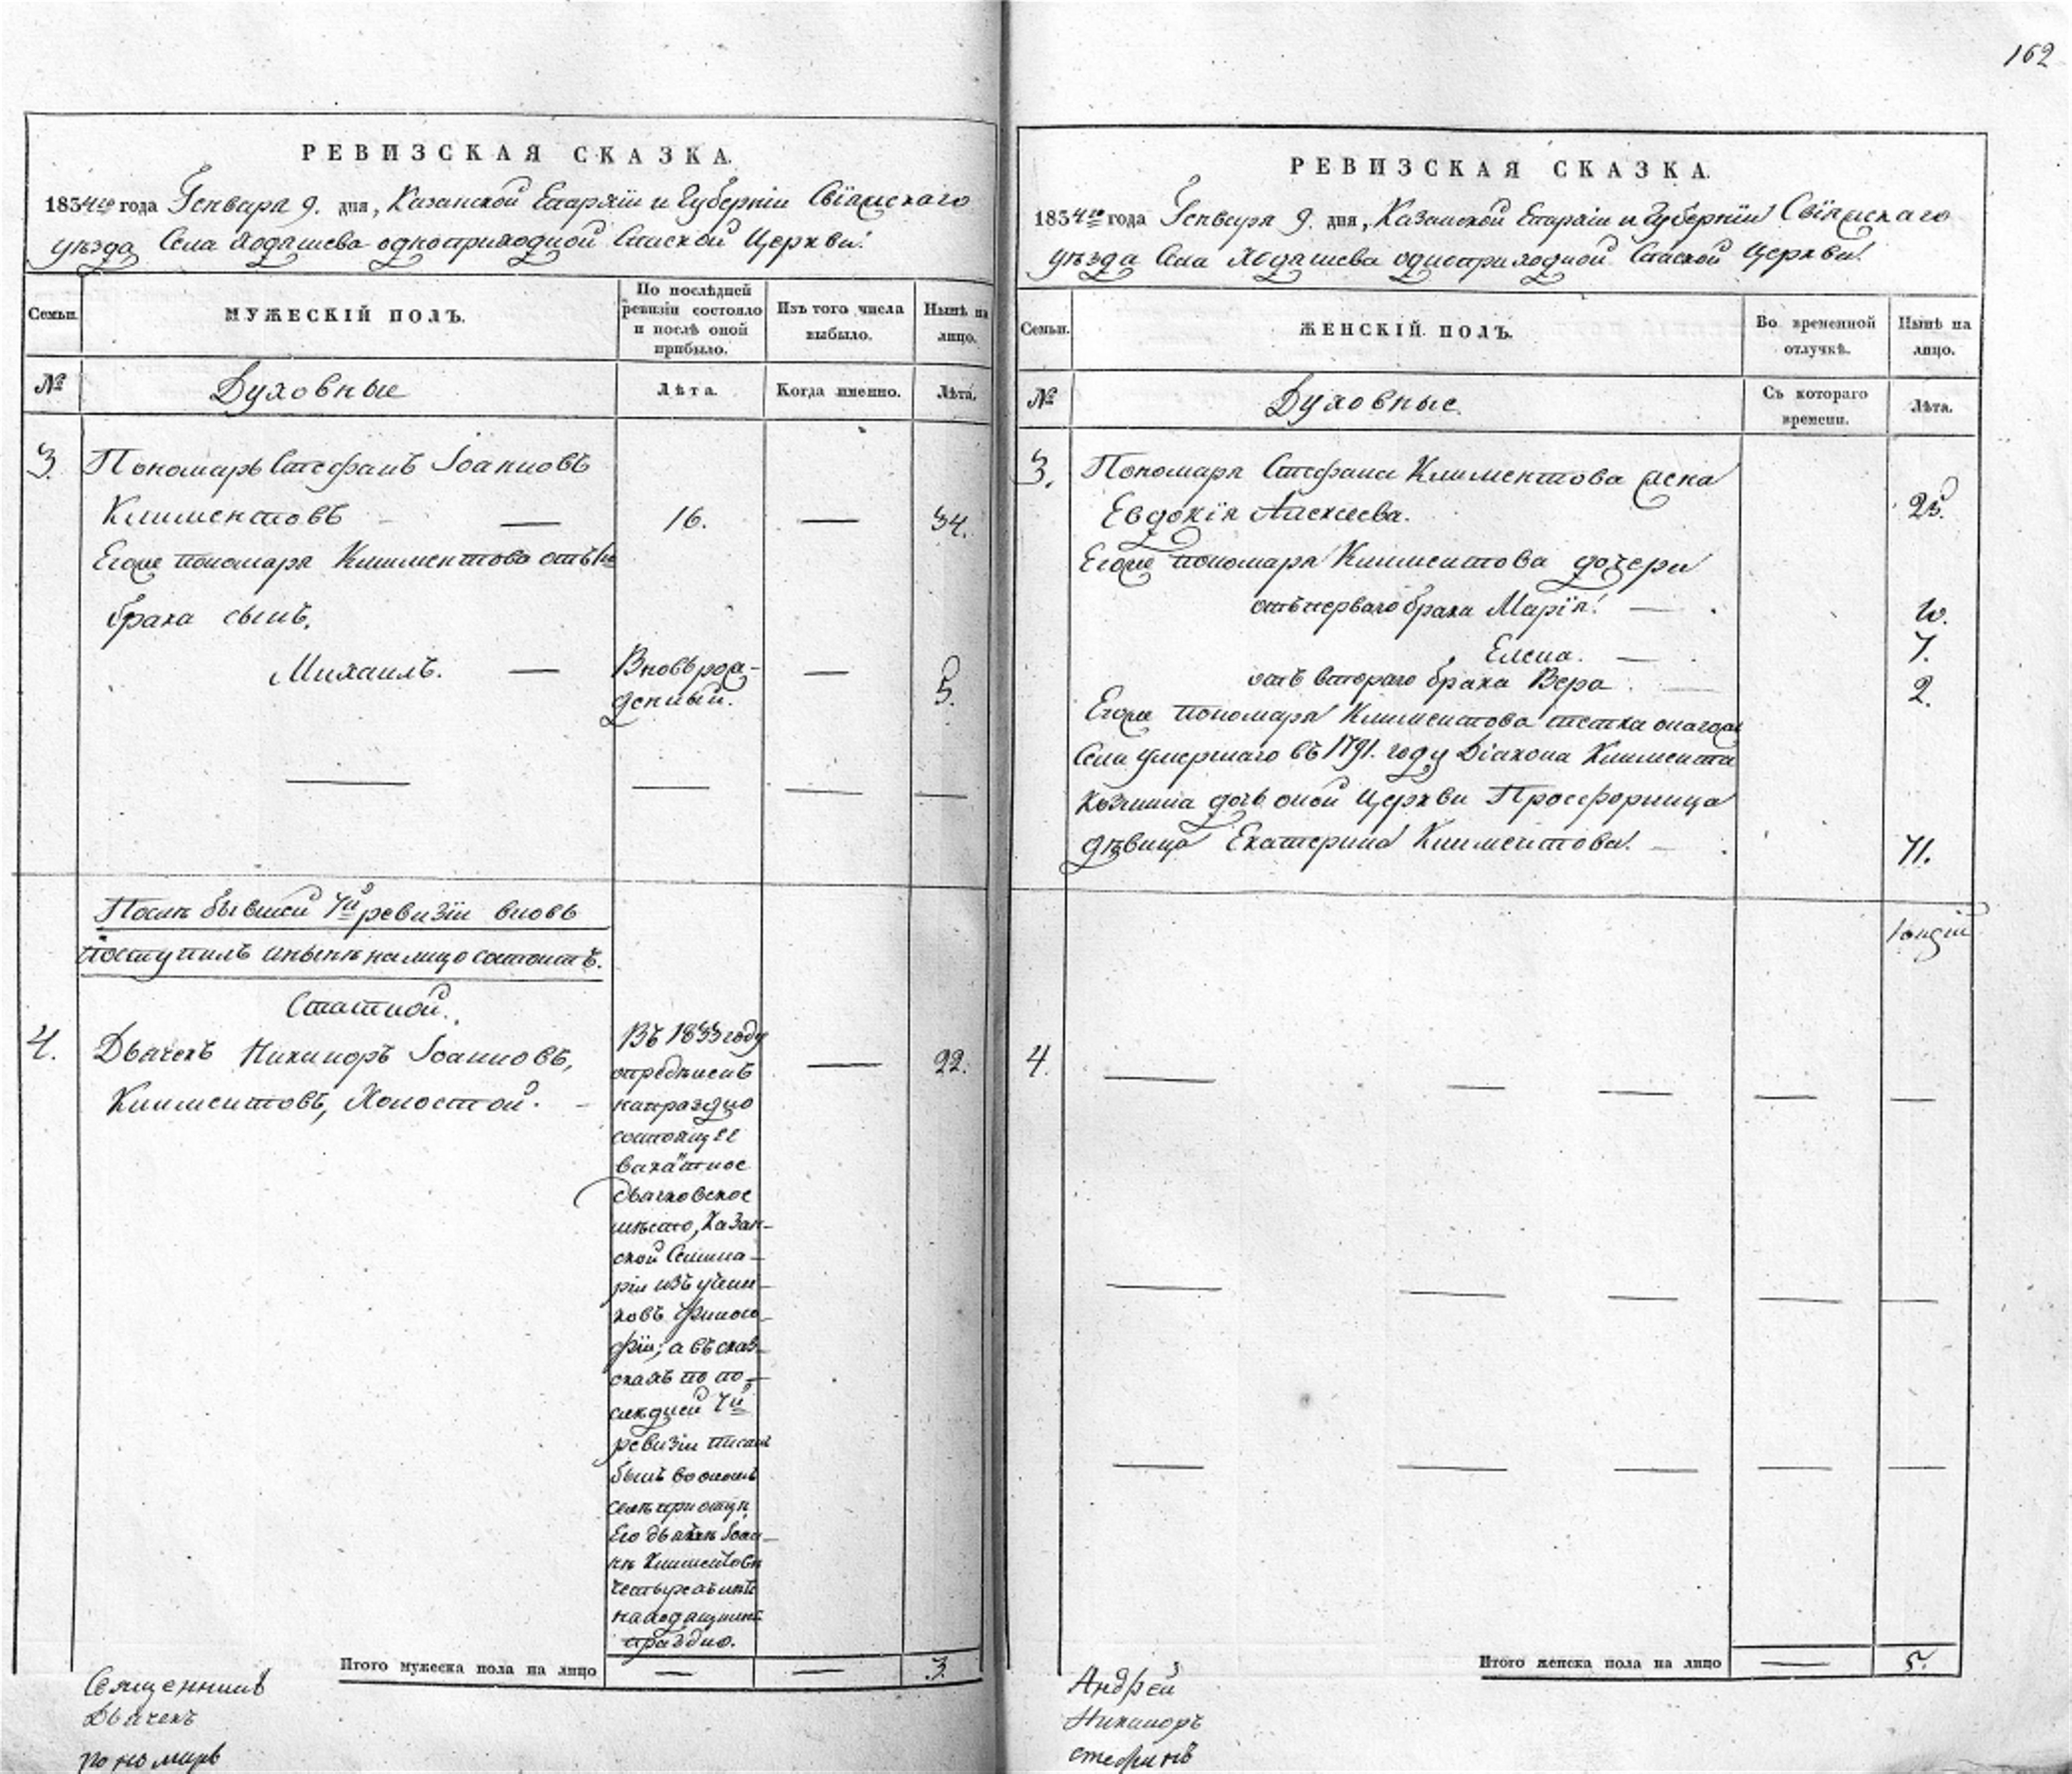 РЕВИЗСКАЯ СКАЗКА.
1834го года Генваря 9. дня, Казанской Епархіи и Губерніи Свіяжскаго
уѣзда Села Ходяшева одноприходной Спаской Церкви.
Семьи.
МУЖЕСКІЙ ПОЛЪ.
По послѣдней
ревизіи состояло
и послѣ оной
прибыло.
Изъ того числа
выбыло.
Нынѣ на
лицо.
№
Духовные
Лѣта.
Когда именно.
Лѣта.
3.
Пономарь Стефанъ Іоанновъ
Климентовъ — 16. — 34.
Егоже пономаря Климентова отъ 1го
брака сынъ.
Михаилъ. — Вновь рож-
денный. — 5.
Послѣ бывшей 7й ревизіи вновь
поступилъ и нынѣ на лицо состоитъ.
Статной.
4.
Дьячекъ Никаноръ Іоанновъ,
Климентовъ, Холостой. — 22.
Въ 1833 году
опредѣленъ
на праздно
состоящее
вакантное
дьячковское
мѣсто, Казан-
ской Семина-
ріи изъ учени-
ковъ Филосо-
фіи; а въ сказ-
скахъ по по-
слѣдней 7й
ревизіи писанъ
былъ во ономъ
селѣ при отцѣ
Его дьячкѣ Іоан-
нѣ Климентовѣ
четырехъ лѣтъ
находящимся
праздно.
Итого мужеска пола на лицо — — 3.
Священникъ
Дьячекъ
пономарь
162
РЕВИЗСКАЯ СКАЗКА.
1834го года Генваря 9. дня, Казанской Епархіи и Губерніи Свіяжскаго
уѣзда Села Ходяшева одноприходной Спаской Церкви.
Семьи.
ЖЕНСКІЙ ПОЛЪ.
Во временной
отлучкѣ.
Нынѣ на
лицо.
№
Духовные
Съ котораго
времени.
Лѣта.
3.
Пономаря Стефана Климентова жена
Евдокія Алексеева. 25.
Егоже пономаря Климентова дочери
отъ перваго брака Марія. — 10.
Елена. — 7.
отъ втораго брака Вера. — 2.
Егоже пономаря Климентова тетка онагоже
Села умершаго въ 1791. году Діакона Климента
Козмина дочь оной Церкви Просфорница
дѣвица Екатерина Климентова. — 71.
4.
Итого женска пола на лицо — 5.
Андрей
Никаноръ
стефанъ